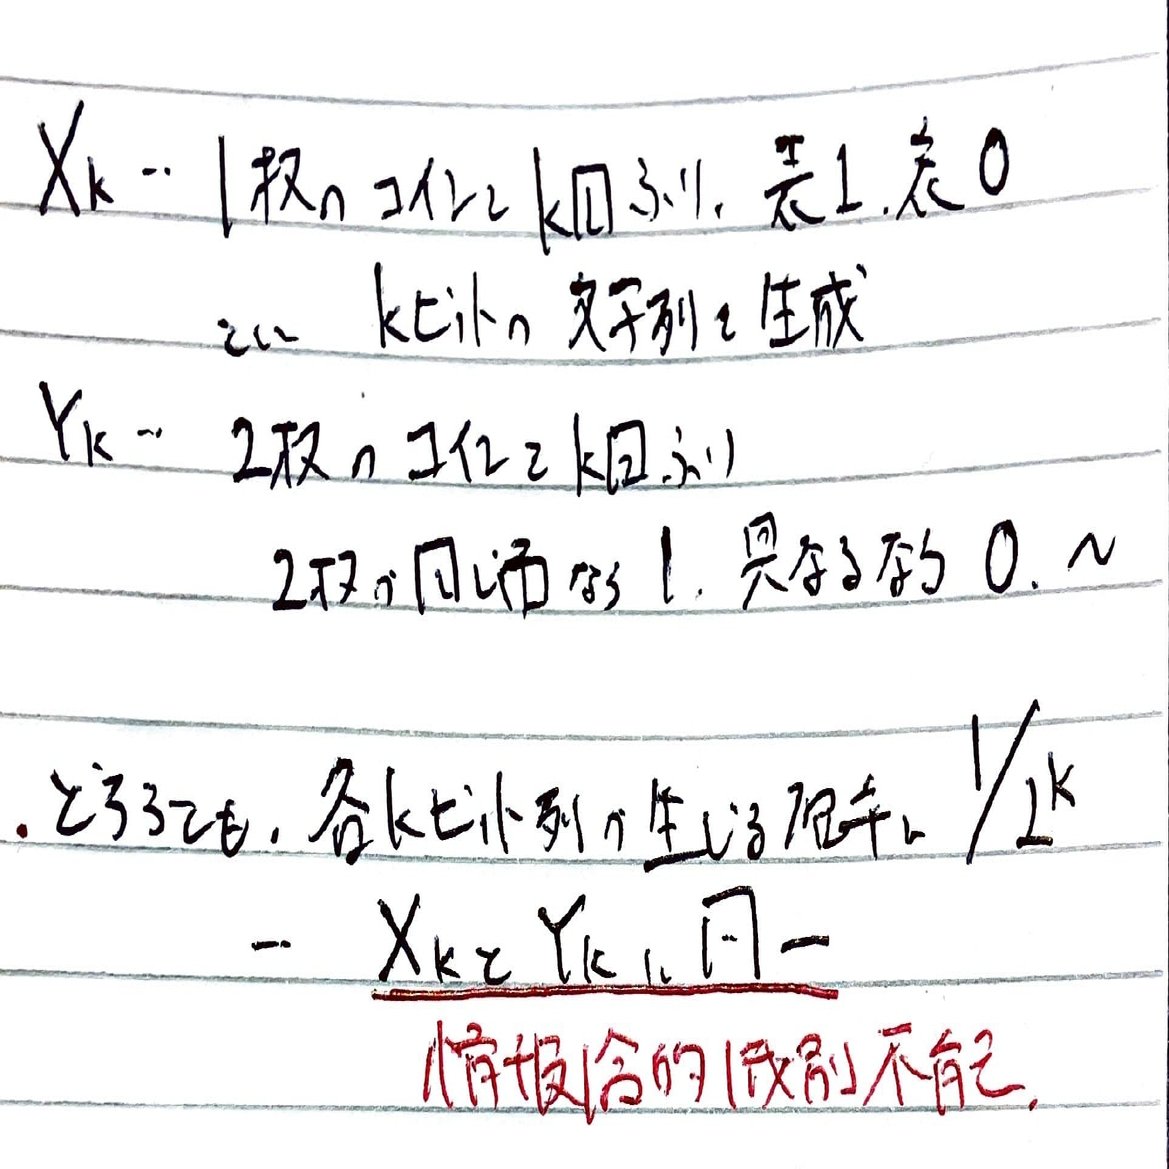 Xk … 1枚のコインをk回ふり、表1、裏0
として kビットの文字列を生成
Yk … 2枚のコインをk回ふり
2枚が同じ面なら1、異なるなら0、〜
・どちらでも、各kビット列が生じる確率は 1/2^k
… XkとYkは同一
情報論的識別不能.